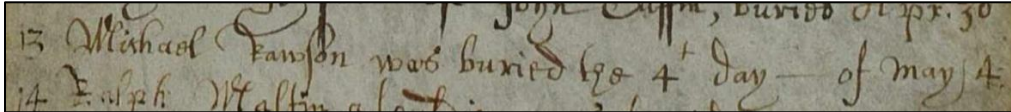 John Tassin, buried Apr. 30
13 Michael Rawson was buried the 4t day — of may 4
14 Ralph